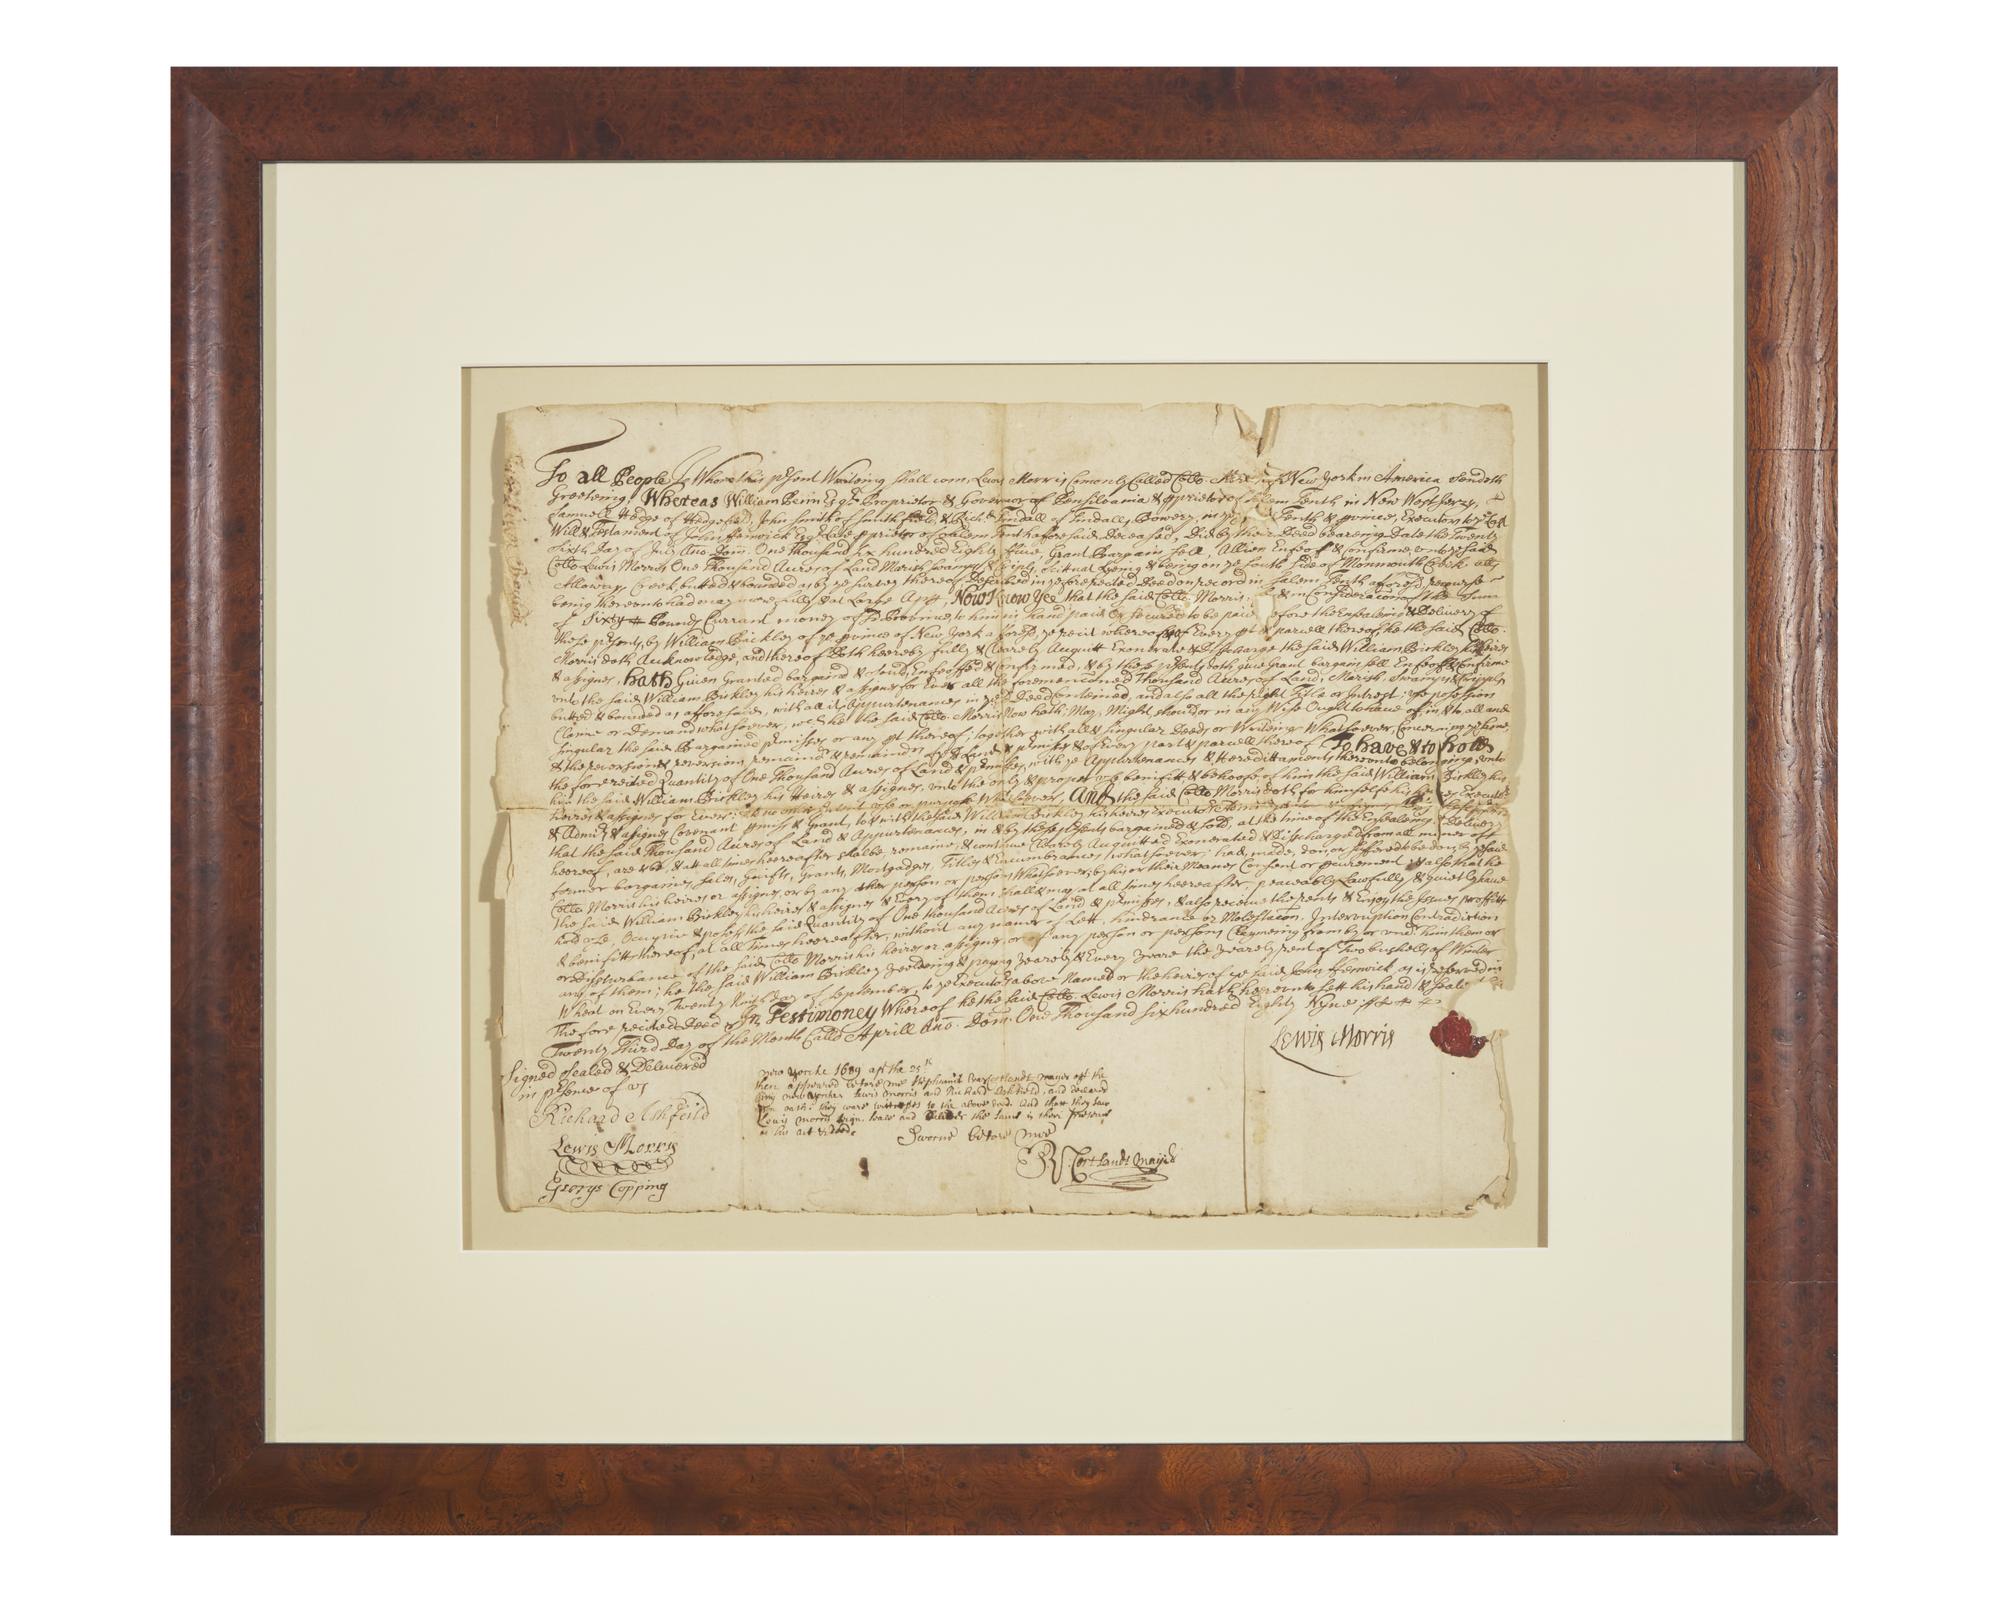 To all People To Whome this pr͠sent Writeing shall com, Lewis Morris Comonly Called Collo New York in America Sendeth
Greeteing, Whereas William Penn Esqr Proprietor & Governor of Pensilvania & pprietor of Salem Tenth in New West Jerzy,
Samuell Hedge of Hedgefield, John Smith of Smith field, & Richd Tindall of Tindalls Bowery, in ye Tenth & pvince, Executors to ye Last
Will & Testament of John Fenwick Esqr Late pprietor of Salem Tenth aforesaid, Deceased, Did by their Deed beareing Date the Twenty
Sixth Day of July Ano. Dom. One Thousand Six hundred Eighty five, Grant Bargain Sell, Allien Enfeoff & Confirme, unto ye said
Collo Lewis Morris One Thousand Acres of Land Marish Swamps & Cripls, Scituat Lyeing & being on ye South Side of Monmouth Creek als
Alloways Creek butted & bounded as by ye survey thereof Described in ye forerecited Deed on record in Salem Tenth aforesd recourse
being thereunto had may more fully & at Large Apr, Now Know Yee that the said Collo Morris, & in Consideracon of the Sum
of Sixty Pounds Currant money of sd Province to him in hand paid or secured to be paid before the Ensealeing & Delivery of
these pr͠sents, by William Bickley of ye pvince of New York aforesd, ye receit whereof & of Every pt & parcell thereof, he the said Collo
Morris doth Acknowledge, and thereof Doth hereby fully & Clearely Acquitt Exonerate & Discharge the said William Bickley his heires
& assignes, hath Given Granted bargaind & sould, Enfeoffed & Confirmed, & by these pr͠sents doth give Grant bargain sell Enfeoff & Confirme
unto the said William Bickley his heires & assignes for Ever all the forementioned Thousand Acres of Land, Marish Swamps & Cripls
butted & bounded as afforesaid, with all its Appurtenances in ye sd Deed contained, and also all the right Title or Intrest use possession
Claime or Demand whatsoever, wch he the said Collo Morris Now hath, May, Might, should or in any Wise Ought to have of in & to all and
singular the said Bargained p͠mises or any pt thereof, together with all & singular Deeds or Writeings Whatsoever, Concerning ye same
& the reversion & reversions remaind & remainders of ye sd Land & p͠mises & of Every part & parcell thereof To have & to hold
the forerecited Quantity of One Thousand Acres of Land & p͠mises, with ye Appurtenances & Hereditaments thereunto belonging unto
him the said William Bickley his Heires & assignes, unto the only & proper use benifitt & behoofe of him the said William Bickley his
heires & assignes for Ever: & to no other Intent use or purpose Whatsoever, And the said Collo Morris doth for himselfe his heires Executrs
& Admrs & assignes Covenant pmise & Grant, to & with the said William Bickley his heires
that the said Thousand Acres of Land & Appurtenances, in & by these pr͠sents bargained & sold, at the time of the Ensealeing & Delivery
hereof, are & be, & att all times heereafter shalbe, remaine, & continue Clearely Acquitted Exonerated & Discharged from all maner off
former bargaines, sales, Guifts, Grants, Mortgadges, Titles & Encumbrances whatsoever: had, made, don, or suffered to be don by ye said
Collo Morris his heires or assignes, or by any other person or persons Whatsoever; by his or their Meanes Consent or pcurement: & also that he
the said William Bickley his heires & assignes & Every of them shall & may, at all times heereafter, peaceably Lawfully & quietly have
hold use, Occupie & possess the said Quantity of One thousand Acres of Land & p͠mises, & also receive the rents & Enjoy the Issues proffitts
& benifitts thereof, at all Times heereafter, without any manner of Lett, hindrance or Molestacon, Interruption Contradiction
or Disturbance of the said Collo Morris his heires or assignes, or of any person or persons Claymeing from by or undr him them or
any of them; he the said William Bickley yeeldeing & paying yearely & Every yeare the yearely rent of Two bushells of Winter
Wheat on Every Twenty Ninth Day of September, to ye Executors above Named or the heires of ye said John Fenwick as is reserved in
The fore recited Deed In Testimoney Whereof he the said Collo Lewis Morris hath heereunto sett his hand & seale
Twenty Third Day of the Month Called Aprill Ano. Dom. One Thousand six hundred Eighty Nyne
Lewis Morris
Signed Sealed & Delivered
in pr͠sence of us
Richard Ashfeild
Lewis Morris
George Copping
new yorke 1689 apr the 25th
then appeared before me Stephanus van Cortlandt mayor off the
Citty new yorke Lewis Morris and Richard Ashfield, and declared
upon oath: they were wittnesses to the above deed. And that they saw
Lewis morris sign. seale and deliver the same in their presence
as his act & deede
Sworne before mee
SV Cortlandt Mayor